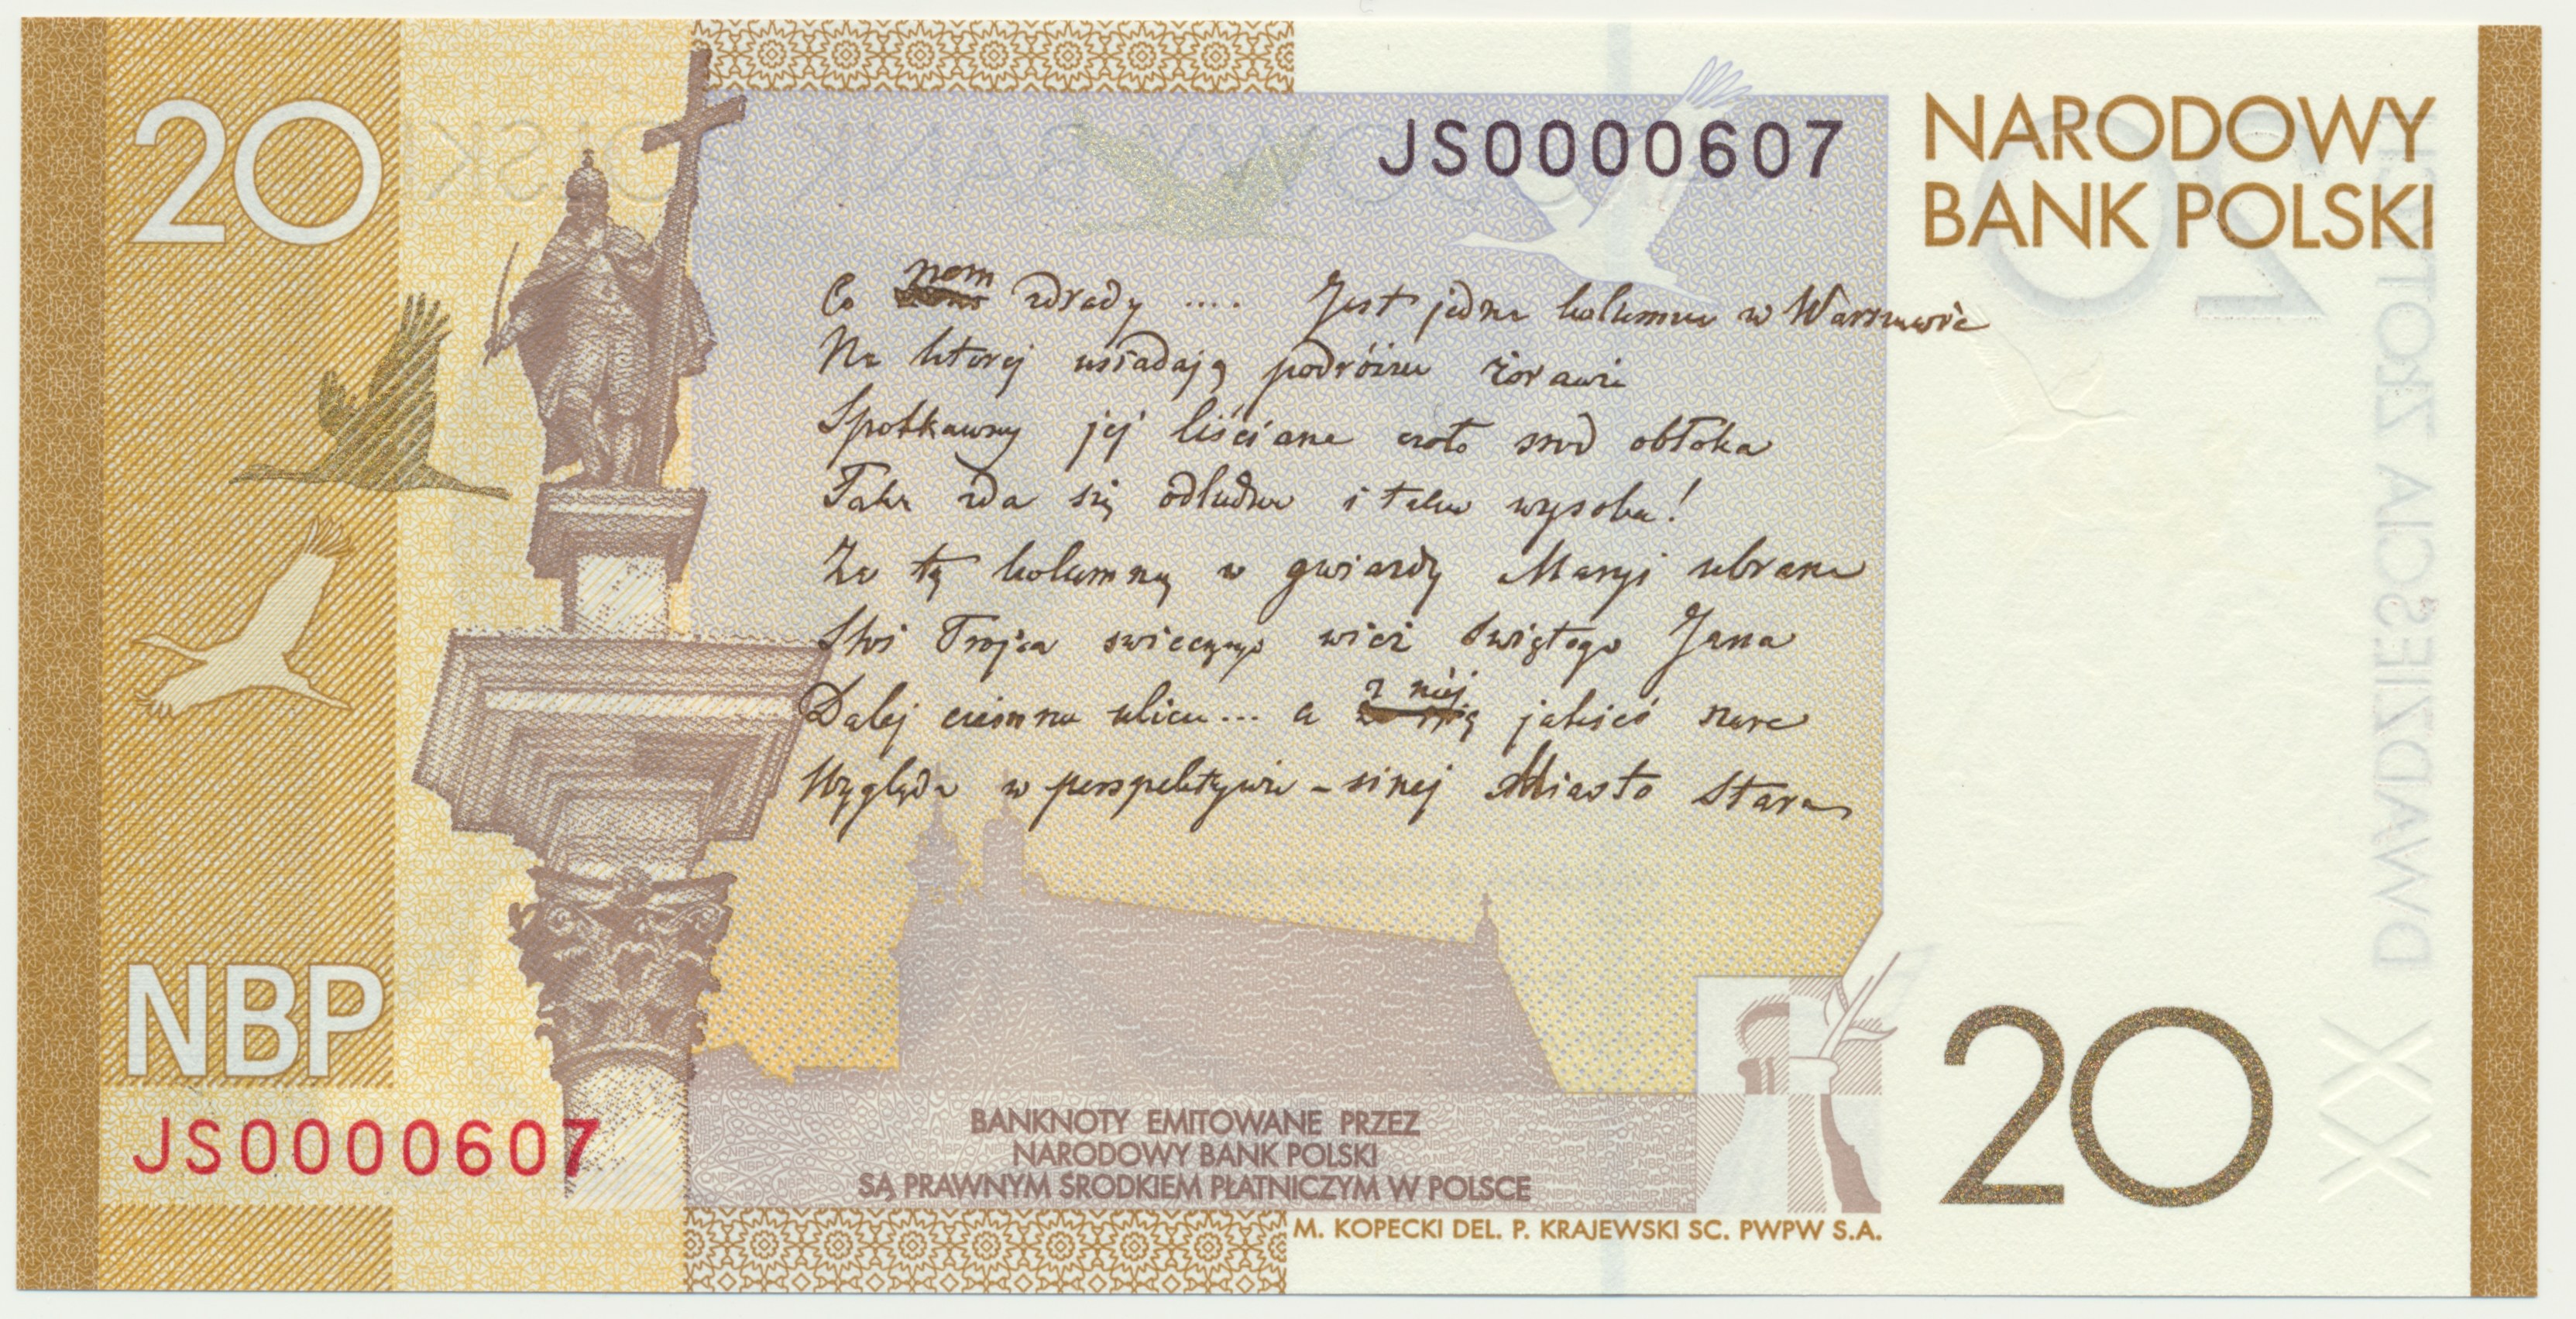 20
JS0000607
NARODOWY
BANK POLSKI
nom
Co zdrady .... Jest jedna kolumna w Warszawie
Na ktorej usiadają podróżne żorawie
Spotkawszy jej liściane czoło snod obłoka
Taka zda się odludna i taka wysoka!
Za tą kolumną w gwiazdy Maryi ubrana
Stoi Trojca swieczna wież Świętego Jana
z niéj
Dalej ciemna ulica... a jakieś szare
Wygląda w perspektywie - sinej Miasto Stare
NBP
JS0000607
BANKNOTY EMITOWANE PRZEZ
NARODOWY BANK POLSKI
SĄ PRAWNYM ŚRODKIEM PŁATNICZYM W POLSCE
M. KOPECKI DEL. P. KRAJEWSKI SC. PWPW S.A.
20
XX
DWADZIEŚCIA ZŁOTYCH